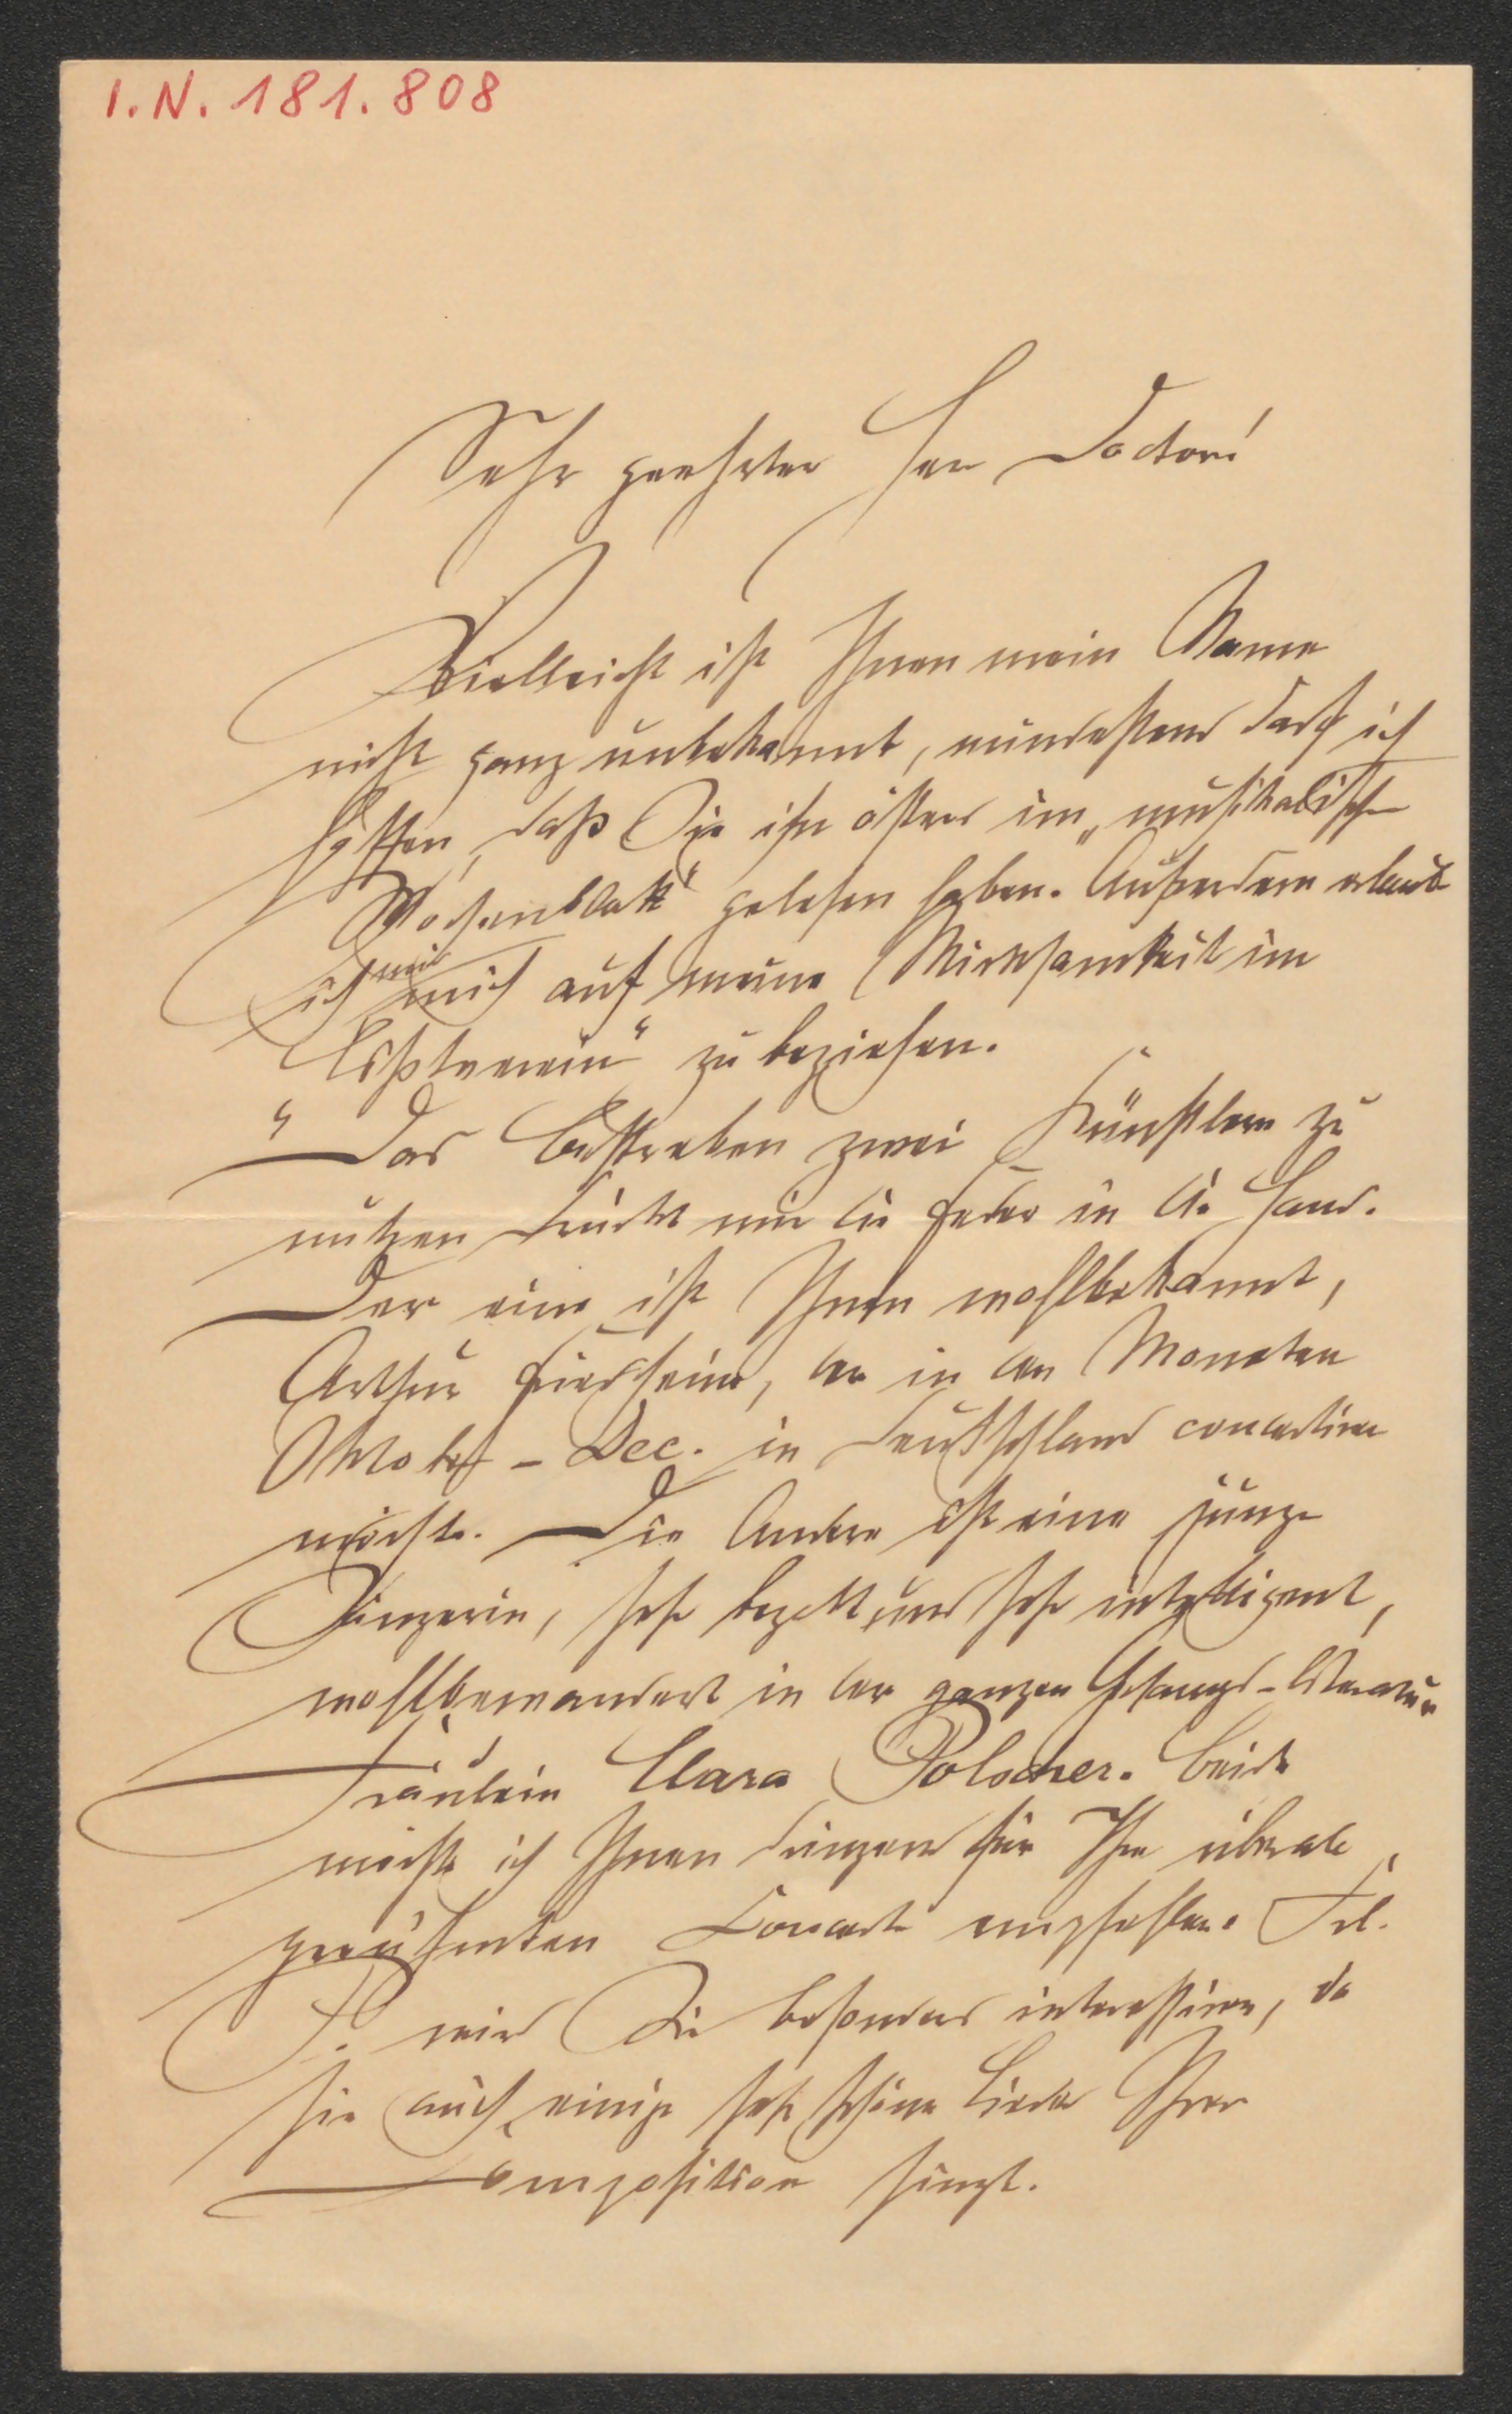 I.N. 181.808
Sehr geehrter Herr Doctor!
Vielleicht ist Ihnen mein Name
nicht ganz unbekannt, mindestens darf ich
hoffen, daß Sie ihn öfters im „musikalischen
Wochenblatt“ gelesen haben. Außerdem erlaube
ich mir mich auf meine Wirksamkeit im
„Lisztverein“ zu beziehen.
Das Bestreben zwei Künstlern zu
nützen drückt mir die Feder in die Hand.
Der eine ist Ihnen wohlbekannt,
Arthur Friedheim, der in den Monaten
Oktober – Dec. in Deutschland concertiren
möchte. Die Andere ist eine junge
Sängerin, sehr begabt und sehr intelligent,
wohlbewandert in der ganzen Gesangs-Literatur
Fräulein Clara Polscher. Beide
möchte ich Ihnen dringend für Ihre überall
gerühmten Concerte empfehlen. Frl.
P. wird Sie besonders interessiren, da
sie auch einige sehr schöne Lieder Ihrer
Composition singt.